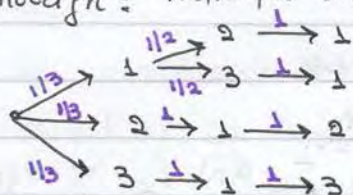 1/2 2 1 1
1/3 1 1/2 3 1 1
1/3 2 1 1 1 2
1/3 3 1 1 1 3